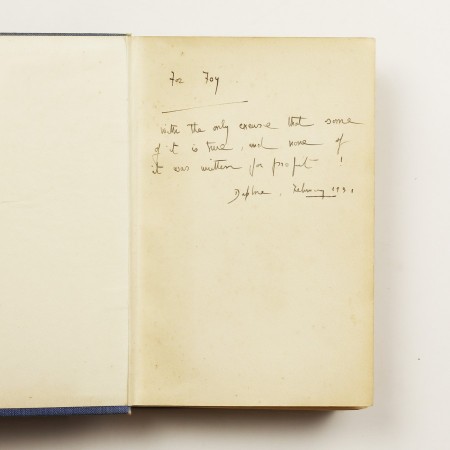 For Foy
with the only excuse that some
of it is true, and none of
it was written for profit !
Daphne. February 1931